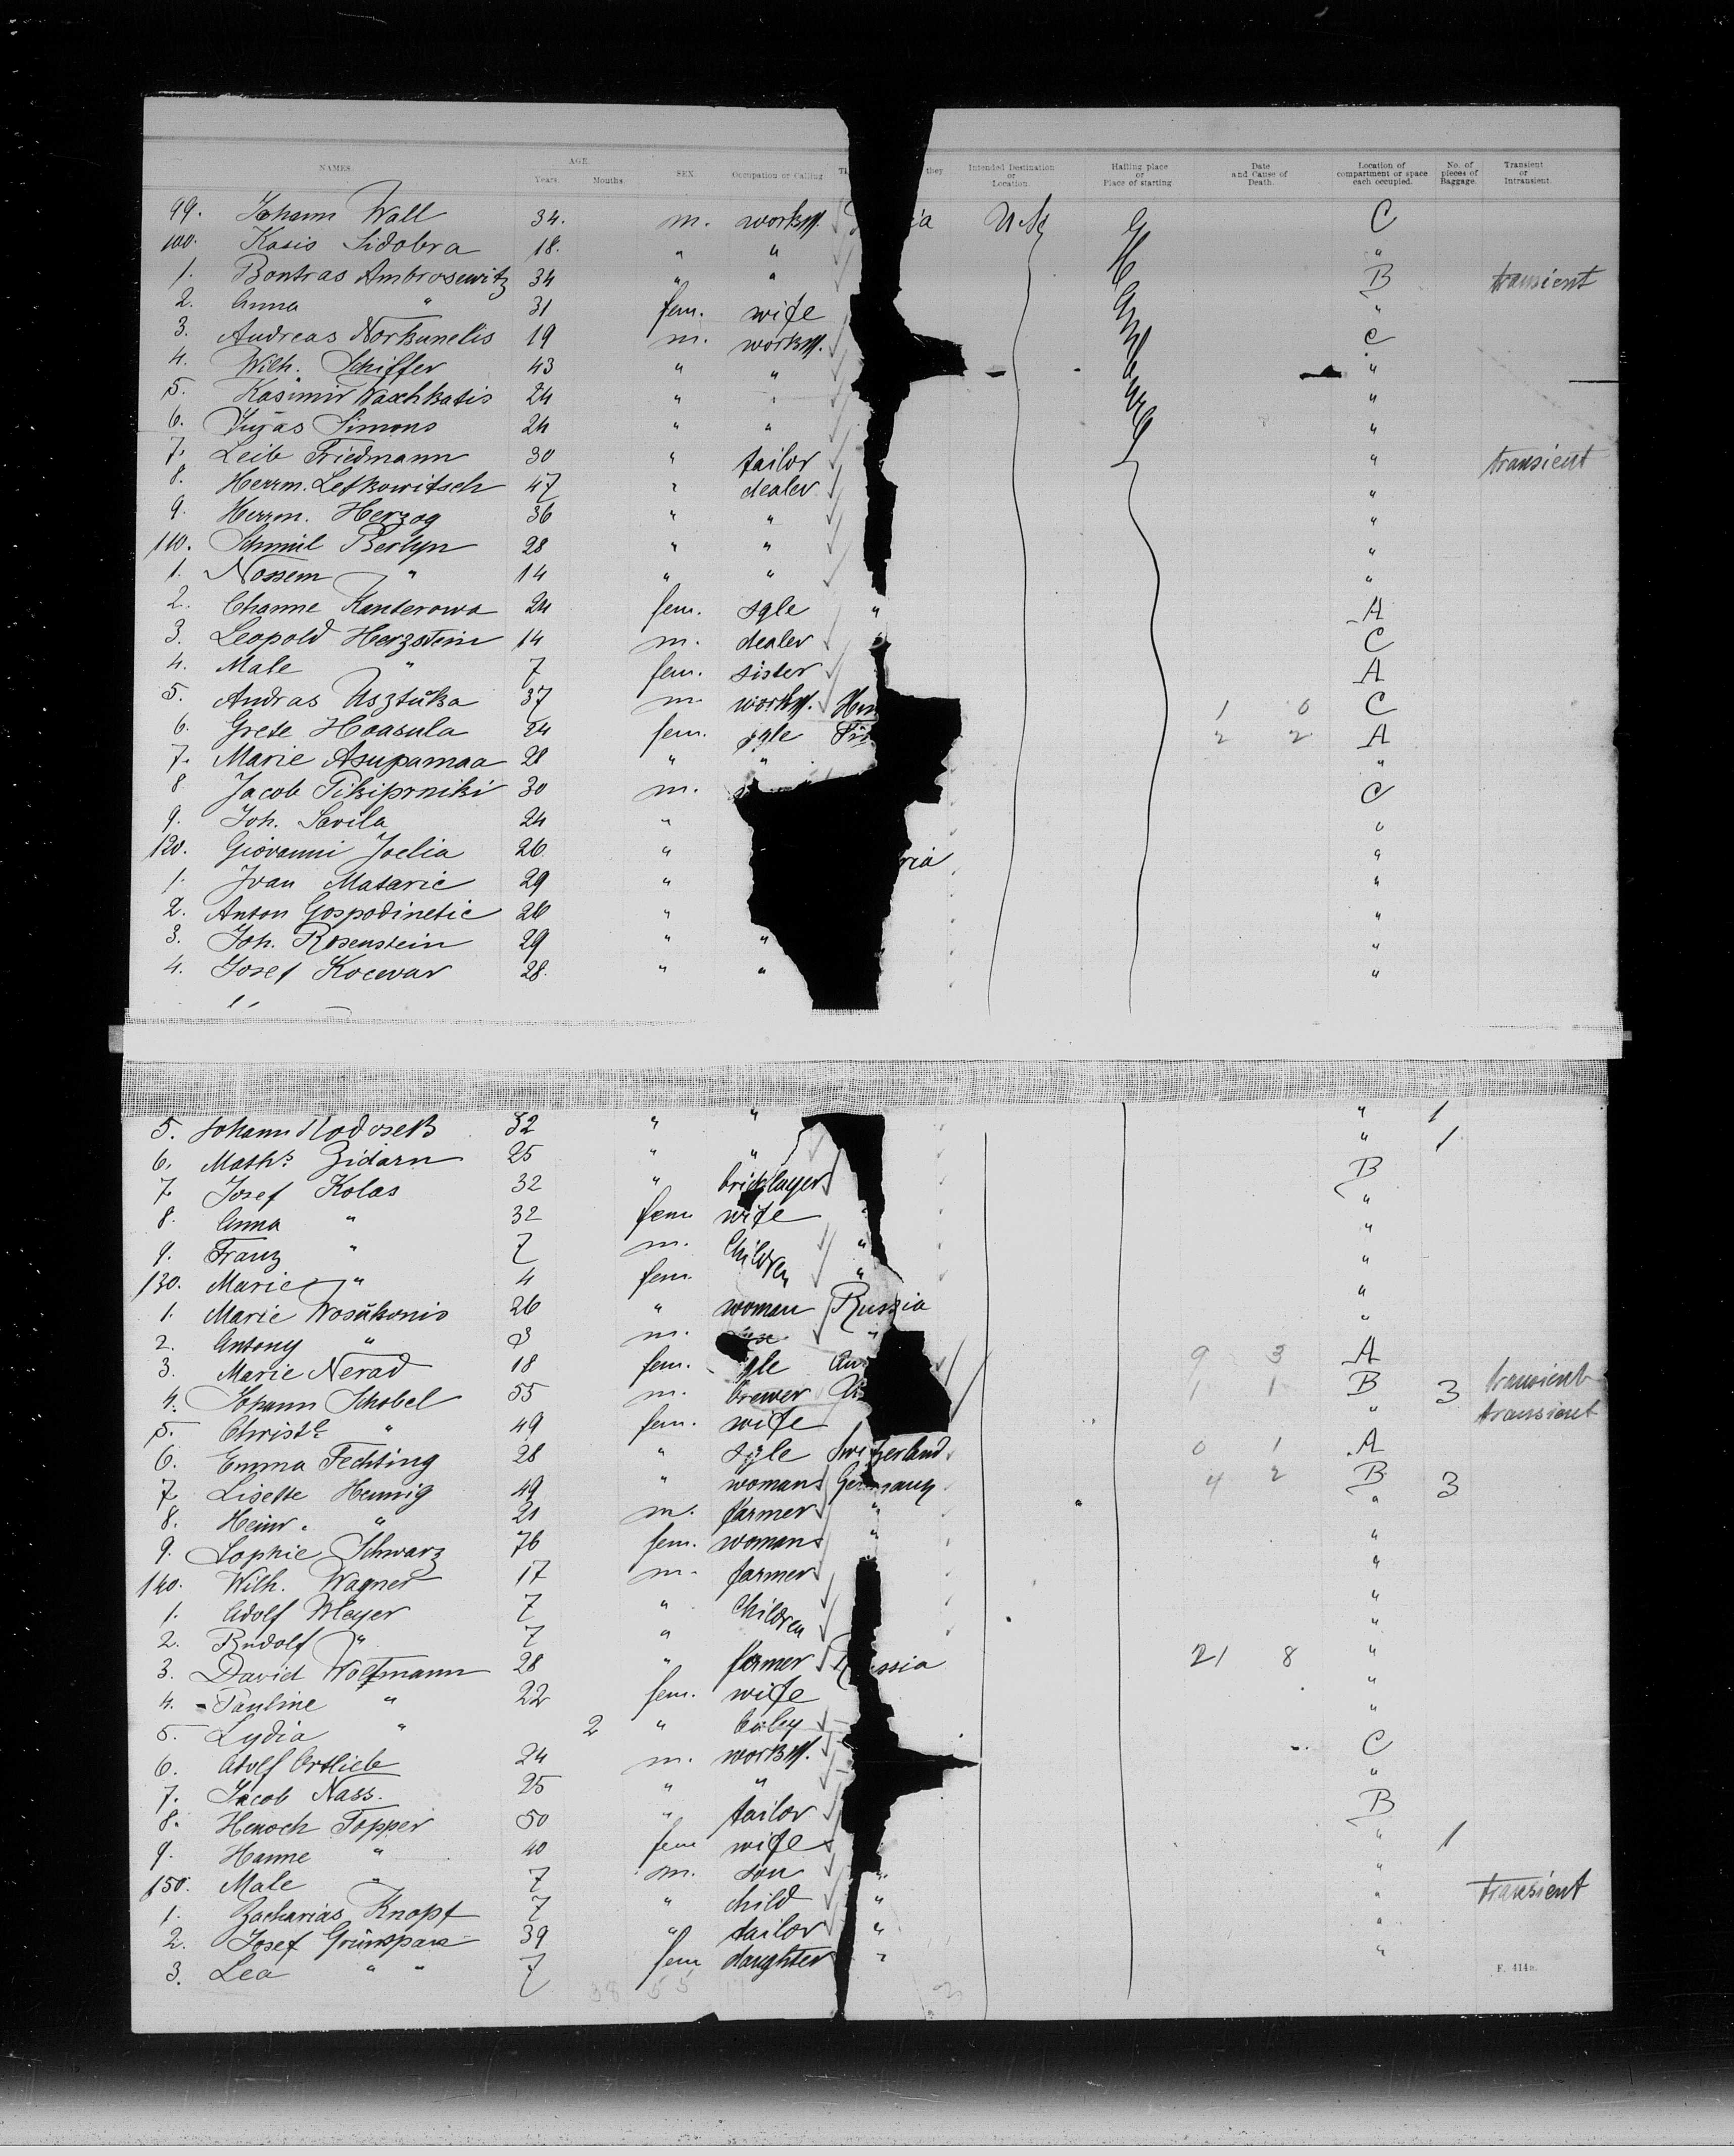 NAMES. AGE. Years. Months. SEX. Occupation or Calling they Intended Destination or Location. Hailing place or Place of starting Date and Cause of Death. Location of compartment or space each occupied. No. of pieces of Baggage. Transient or Intransient.
99. Johann Wall 34. m. workm. C
100. Kasis Sidobra 18. " " "
1. Bontras Ambrosewitz 34 " " B transient
2. Anna " 31 fem. wife "
3. Andreas Norkunelis 19 m. workm. C
4. Wilh. Schiffer 43 " " "
5. Kasimir Waschkatis 24 " " "
6. Simons 24 " " "
7. Leib Friedmann 30 " tailor " transient
8. Herrm. Lefkowitsch 47 " dealer "
9. Herrm. Herzog 36 " " "
110. Schmul Berlyn 28 " " "
1. Nossem " 14 " " "
2. Channe Kanterowa 24 fem. sgle " A
3. Leopold Herzstein 14 m. dealer C
4. Male " 7 fem. sister A
5. Andras Usztuka 37 m. workm. 1 0 C
6. Grete Haasula 24 fem. sgle 2 2 A
7. Marie Asupamaa 28 " " "
8. Jacob Pikiprniki 30 m. C
9. Joh. Savila 24 " "
120. Giovanni Joelia 26 " ria "
1. Ivan Mataric 29 " "
2. Anton Gospodinetic 26 " "
3. Joh. Rosenstein 29 " " "
4. Josef Kocevar 28. " " "
5. Johann 32 " " " 1
6. Zidarn 25 " " " 1
7. Josef Kolas 32 " bricklayer B
8. Anna " 32 fem wife "
9. Franz " 7 m. Children " "
130. Marie " 4 fem. " "
1. Marie Wosukonis 26 " woman Russia "
2. Antony " 3 m. " "
3. Marie Nerad 18 fem. sgle 9 3 A
4. Johann Schobel 55 m. brewer 1 1 B 3 transient
5. " 49 fem. wife " transient
6. Emma Fechting 28 " sgle Switzerland 0 1 A
7. Lisette Hennig 49 " woman Germany 4 2 B 3
8. Heinr. " 21 m. farmer " "
9. Sophie Schwarz 76 fem. woman " "
140. Wilh. Wagner 17 m. farmer "
1. Adolf Meyer 7 " Children "
2. Rudolf " 7 " "
3. David Woltmann 28 " farmer Russia 21 8 "
4. Pauline " 22 fem. wife "
5. Lydia " 2 " baby "
6. Adolf Ortlieb 24 m. workm. C
7. Jacob Nass. 25 " " "
8. Henoch Topper 50 " tailor B
9. Hanne " 40 fem wife " 1
150. Male " 7 m. son " "
1. Zacharias Knopf 7 " child " " transient
2. Josef Grünspan 39 " tailor " "
3. Lea " " 7 fem daughter " "
F. 414